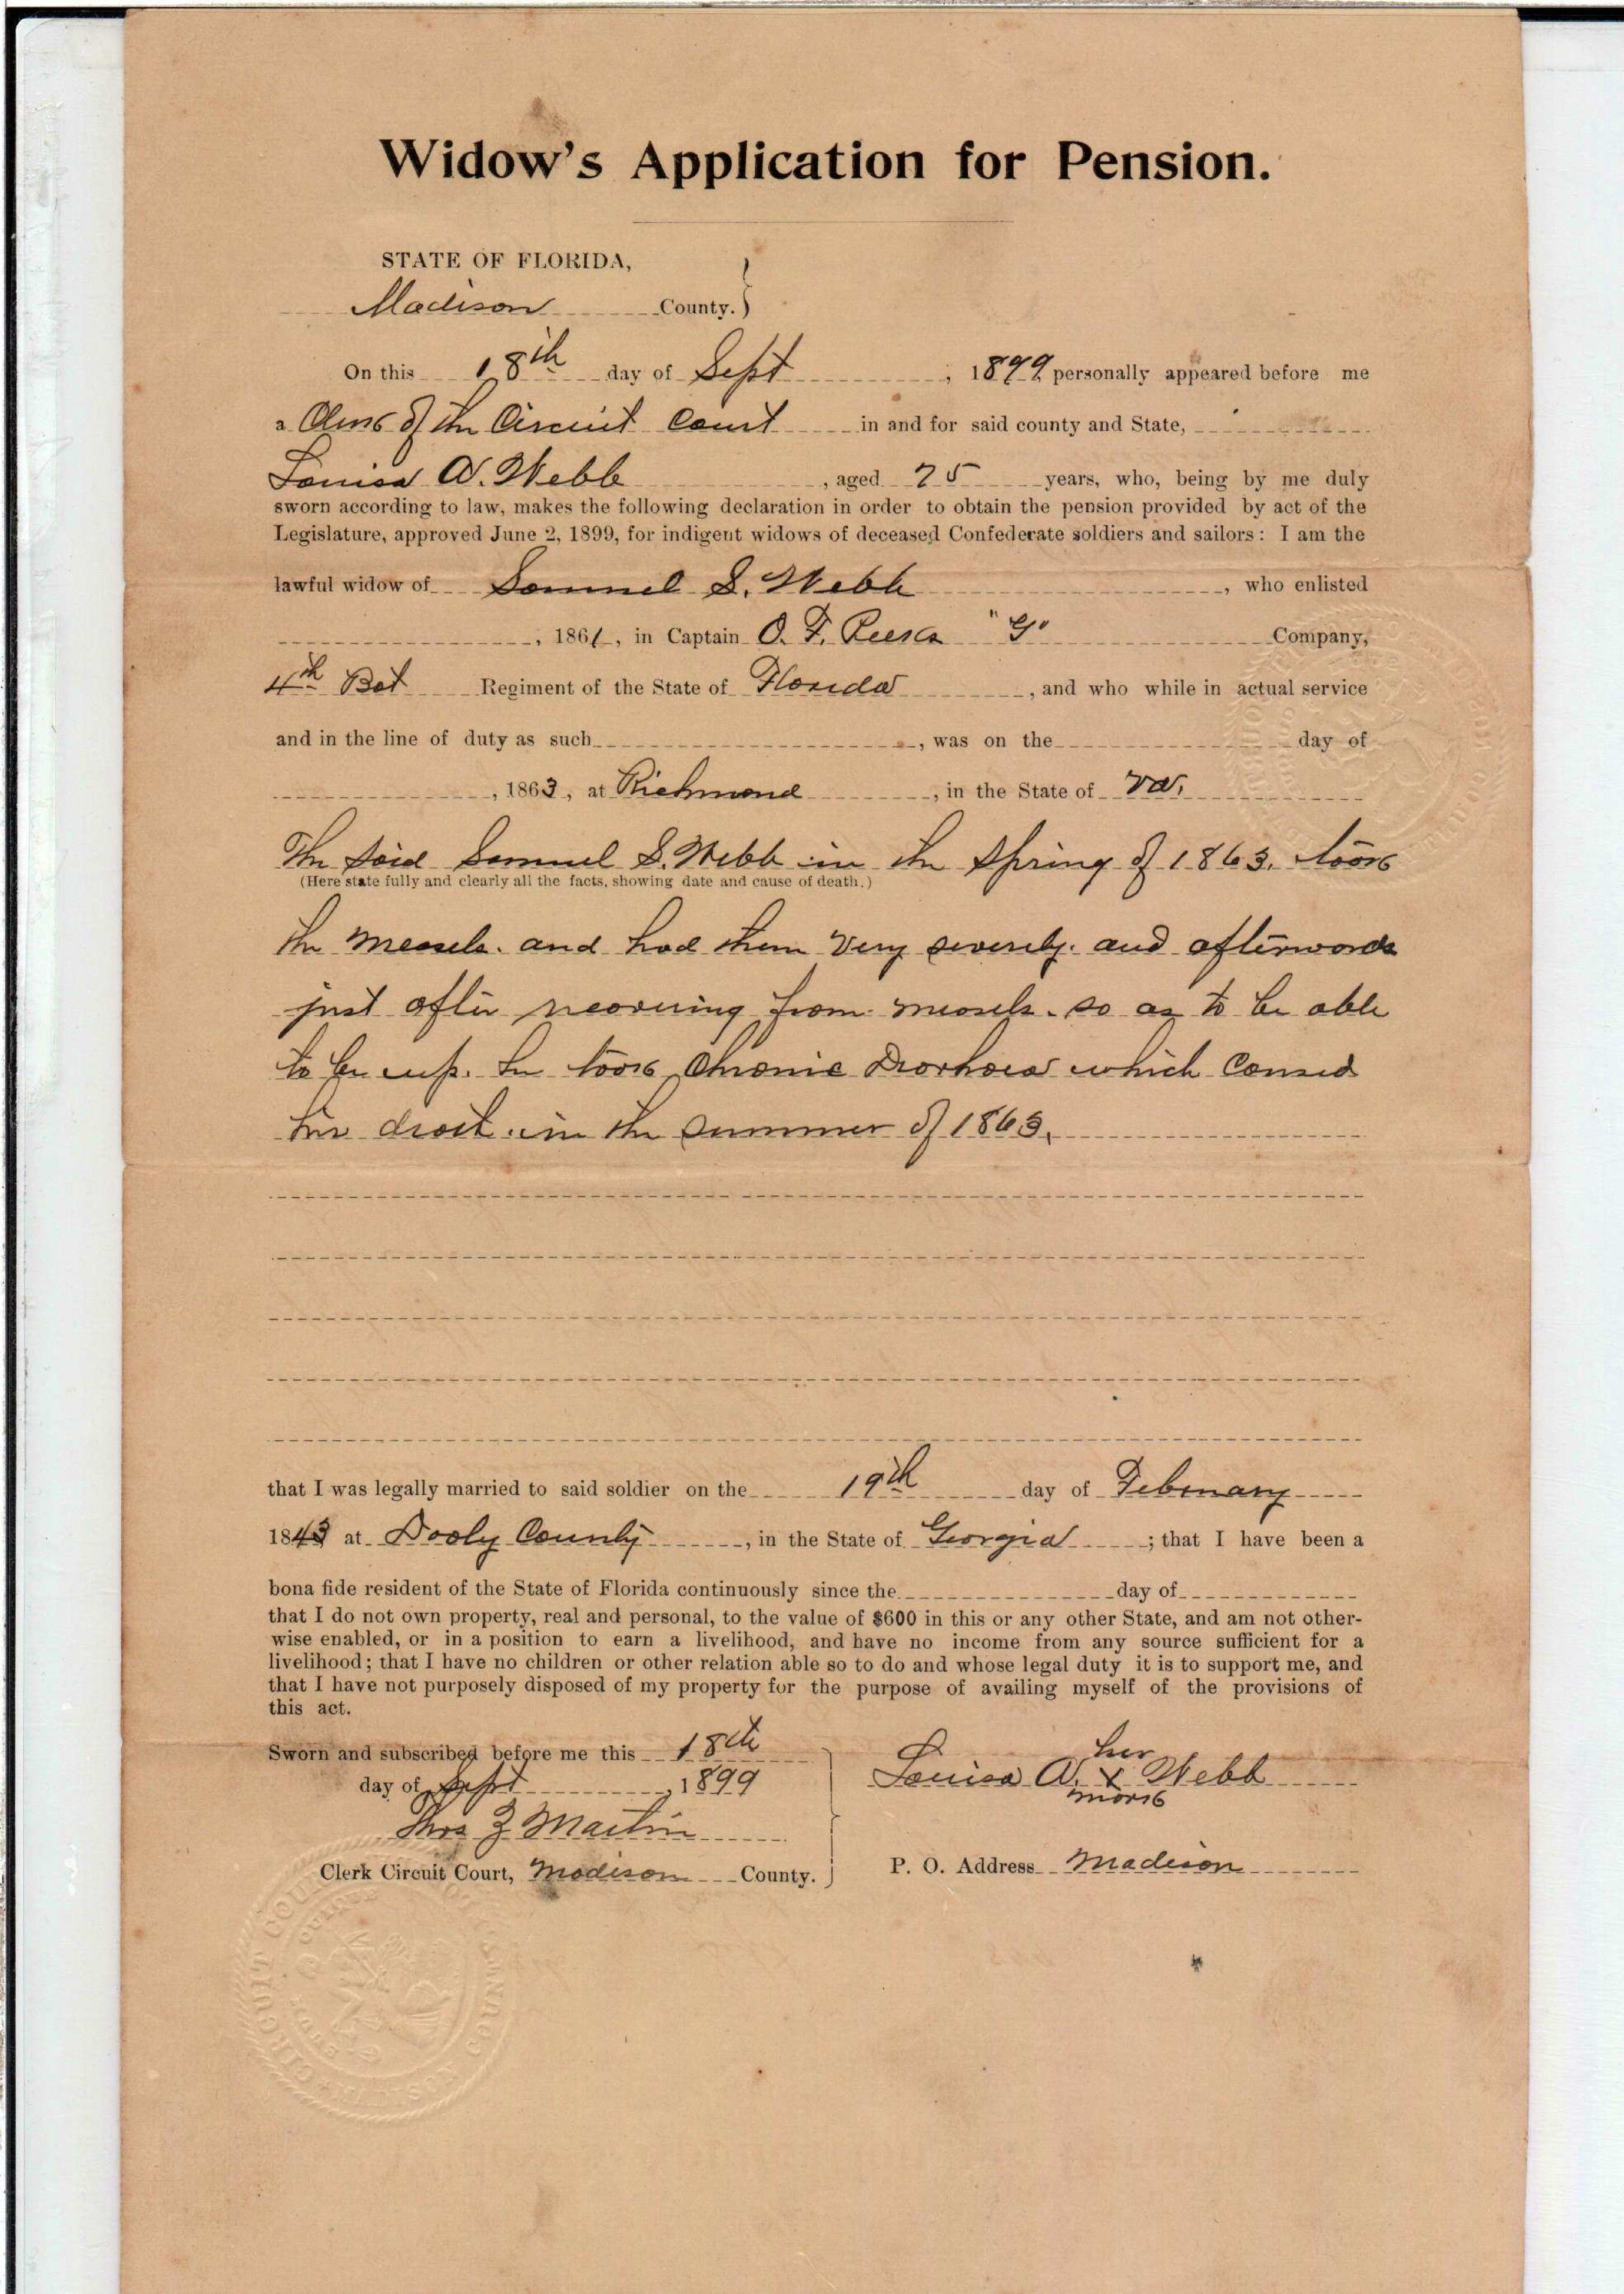 Widow's Application for Pension.
STATE OF FLORIDA,
Madison County.
On this 18th day of Sept, 1899 personally appeared before me
a Clerk of the Circuit Court in and for said county and State,
Louisa A. Webb, aged 75 years, who, being by me duly
sworn according to law, makes the following declaration in order to obtain the pension provided by act of the
Legislature, approved June 2, 1899, for indigent widows of deceased Confederate soldiers and sailors: I am the
lawful widow of Samuel S. Webb, who enlisted
, 1861, in Captain O. F. "G" Company,
4th Bat Regiment of the State of Florida, and who while in actual service
and in the line of duty as such, was on the day of
, 1863, at Richmond, in the State of Va.
The said Samuel S. Webb in the Spring of 1863. took
(Here state fully and clearly all the facts, showing date and cause of death.)
the measels. and had them very severely. and afterwards
just after recovering from measels. so as to be able
to be up. he took Chronic Diorhoea which Caused
his death. in the summer of 1863.
that I was legally married to said soldier on the 19th day of February
1843 at Dooly County, in the State of Georgia; that I have been a
bona fide resident of the State of Florida continuously since the day of
that I do not own property, real and personal, to the value of $600 in this or any other State, and am not other-
wise enabled, or in a position to earn a livelihood, and have no income from any source sufficient for a
livelihood; that I have no children or other relation able so to do and whose legal duty it is to support me, and
that I have not purposely disposed of my property for the purpose of availing myself of the provisions of
this act.
Sworn and subscribed before me this 18th
day of Sept, 1899
Thos Z Martin
Clerk Circuit Court, Madison County.
her
Louisa A. X Webb
mark
P. O. Address Madison